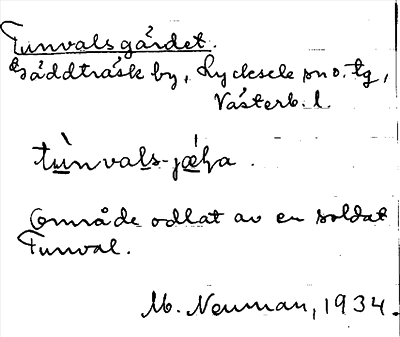 Tunvalsgärdet.
Gäddträsk by, Lycksele sn o. tg,
Västerb. l.
tùnvals-jǽḷa.
Område odlat av en soldat
Tunval.
M. Neuman, 1934.